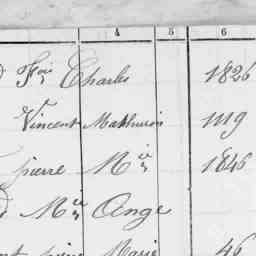 4 5 6
Fois Charles 1826
Vincent Mathurin 1119
pierre Mie 1846
Mie Ange
Marie 46